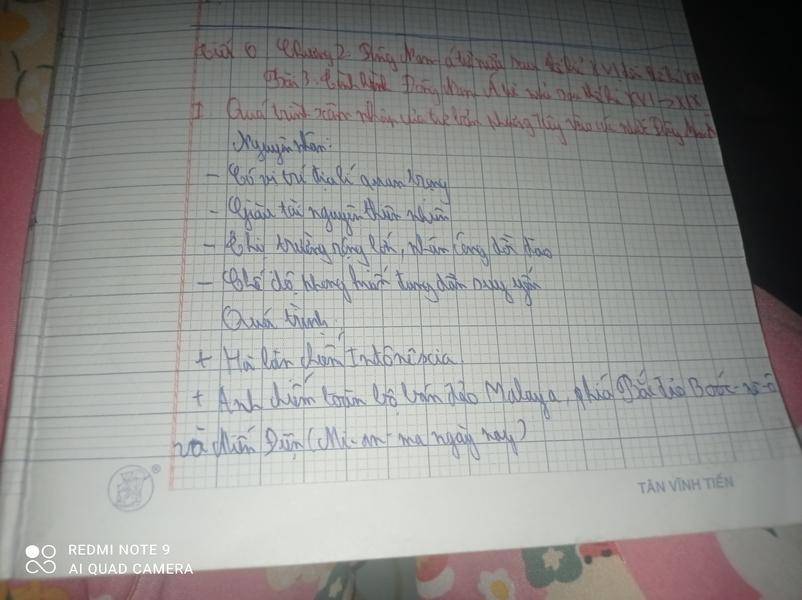 Tiết 6 Chương 2. Đông Nam Á từ nửa sau thế kỉ XVI đến thế kỉ XIX
Bài 3. Tình hình Đông Nam Á từ nửa sau thế kỉ XVI -> XIX
I. Quá trình xâm nhập của tư bản phương Tây vào các nước Đông Nam Á
Nguyên nhân:
- Có vị trí địa lí quan trọng
- Giàu tài nguyên thiên nhiên
- Thị trường rộng lớn, nhân công dồi dào
- Chế độ phong kiến đang dần suy yếu
Quá trình
+ Hà lan chiếm Intônêxia
+ Anh chiếm toàn bộ bán đảo Malaya, phía Bắc đảo
và Miến Điện (Mi-an-ma ngày nay)
TÂN VĨNH TIẾN
REDMI NOTE 9
AI QUAD CAMERA